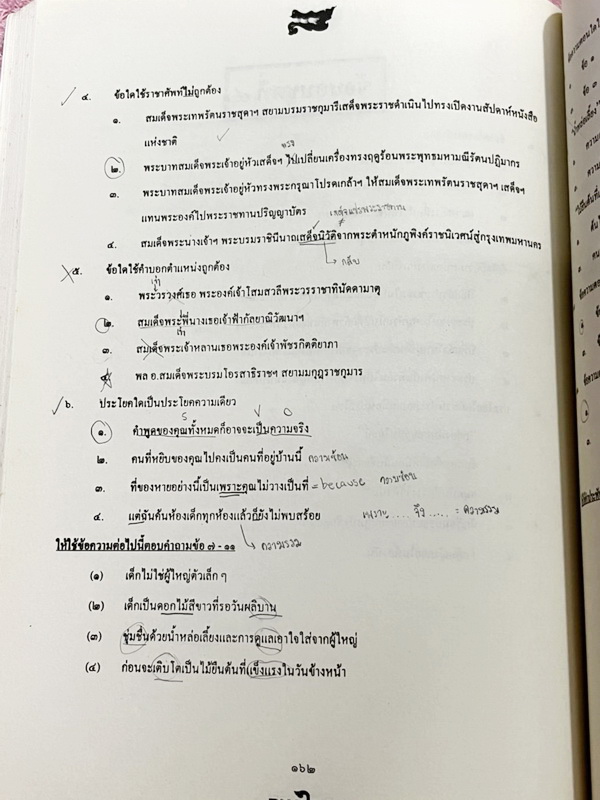 ๔. ข้อใดใช้ราชาศัพท์ไม่ถูกต้อง
๑. สมเด็จพระเทพรัตนราชสุดาฯ สยามบรมราชกุมารีเสด็จพระราชดำเนินไปทรงเปิดงานสัปดาห์หนังสือ
แห่งชาติ
ทรง
๒. พระบาทสมเด็จพระเจ้าอยู่หัวเสด็จฯ ไปเปลี่ยนเครื่องทรงฤดูร้อนพระพุทธมหามณีรัตนปฏิมากร
๓. พระบาทสมเด็จพระเจ้าอยู่หัวทรงพระกรุณาโปรดเกล้าฯ ให้สมเด็จพระเทพรัตนราชสุดาฯ เสด็จฯ
แทนพระองค์ไปพระราชทานปริญญาบัตร
๔. สมเด็จพระนางเจ้าฯ พระบรมราชินีนาถเสด็จนิวัติจากพระตำหนักภูพิงค์ราชนิเวศน์สู่กรุงเทพมหานคร
กลับ
๕. ข้อใดใช้คำบอกตำแหน่งถูกต้อง
เจ้า
๑. พระวรวงศ์เธอ พระองค์เจ้าโสมสวลีพระวรราชาทินัดดามาตุ
๒. สมเด็จพระพี่นางเธอเจ้าฟ้ากัลยาณิวัฒนาฯ
เจ้า
๓. สมเด็จพระเจ้าหลานเธอพระองค์เจ้าพัชรกิติยาภา
๔. พล อ.สมเด็จพระบรมโอรสาธิราชฯ สยามมกุฎราชกุมาร
๖. ประโยคใดเป็นประโยคความเดียว
S V O
๑. คำพูดของคุณทั้งหมดก็อาจจะเป็นความจริง
๒. คนที่หยิบของคุณไปคงเป็นคนที่อยู่บ้านนี้ ความซ้อน
๓. ที่ของหายอย่างนี้เป็นเพราะคุณไม่วางเป็นที่ = because ความซ้อน
๔. แต่ฉันค้นห้องเด็กทุกห้องแล้วก็ยังไม่พบสร้อย เพราะ.....จึง..... = ความรวม
ให้ใช้ข้อความต่อไปนี้ตอบคำถามข้อ ๗ - ๑๑ ความรวม
(๑) เด็กไม่ใช่ผู้ใหญ่ตัวเล็ก ๆ
(๒) เด็กเป็นดอกไม้สีขาวที่รอวันผลิบาน
(๓) ชุ่มชื่นด้วยน้ำหล่อเลี้ยงและการดูแลเอาใจใส่จากผู้ใหญ่
(๔) ก่อนจะเติบโตเป็นไม้ยืนต้นที่แข็งแรงในวันข้างหน้า
๑๖๒